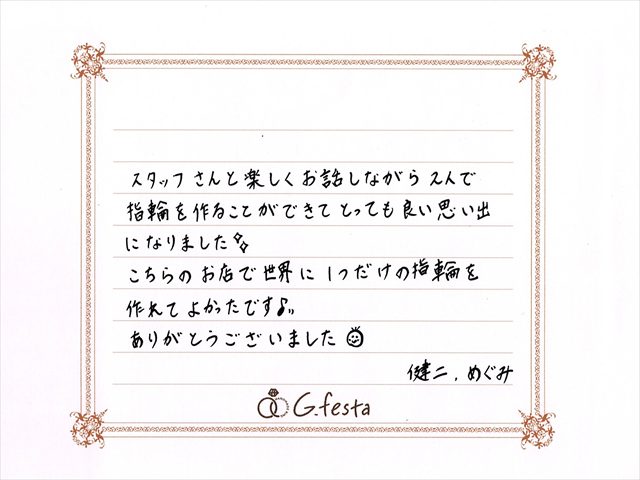 スタッフさんと楽しくお話しながら2人で
指輪を作ることができてとっても良い思い出
になりました✨
こちらのお店で世界に1つだけの指輪を
作れてよかったです♪
ありがとうございました
健二、めぐみ
G.festa